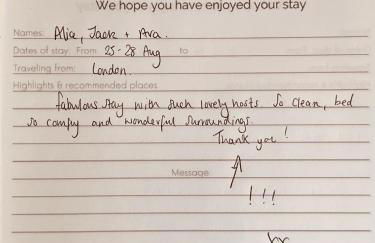 We hope you have enjoyed your stay
Names: Alice, Jack + Ava.
Dates of stay: From 25-28 Aug to
Traveling from: London.
Highlights & recommended places
fabulous stay with such lovely hosts so clean, bed
so comfy and wonderful surroundings.
Thank you!
Message
!!!